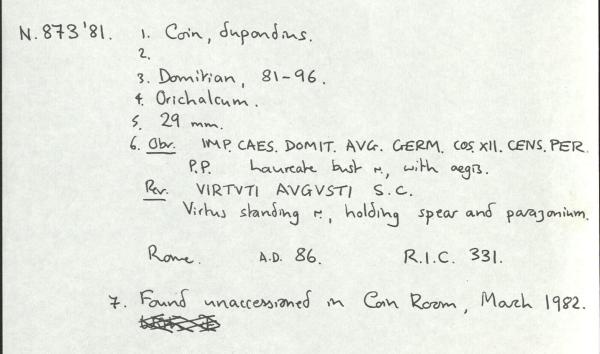 N.873'81. 1. Coin, dupondius.
2.
3. Domitian, 81-96.
4. Orichalcum.
5. 29 mm.
6. Obv. IMP. CAES. DOMIT. AVG. GERM. COS. XII. CENS. PER.
P.P. Laureate bust r., with aegis.
Rev. VIRTVTI AVGVSTI S.C.
Virtus standing r., holding spear and parazonium.
Rome. A.D. 86. R.I.C. 331.
7. Found unaccessioned in Coin Room, March 1982.